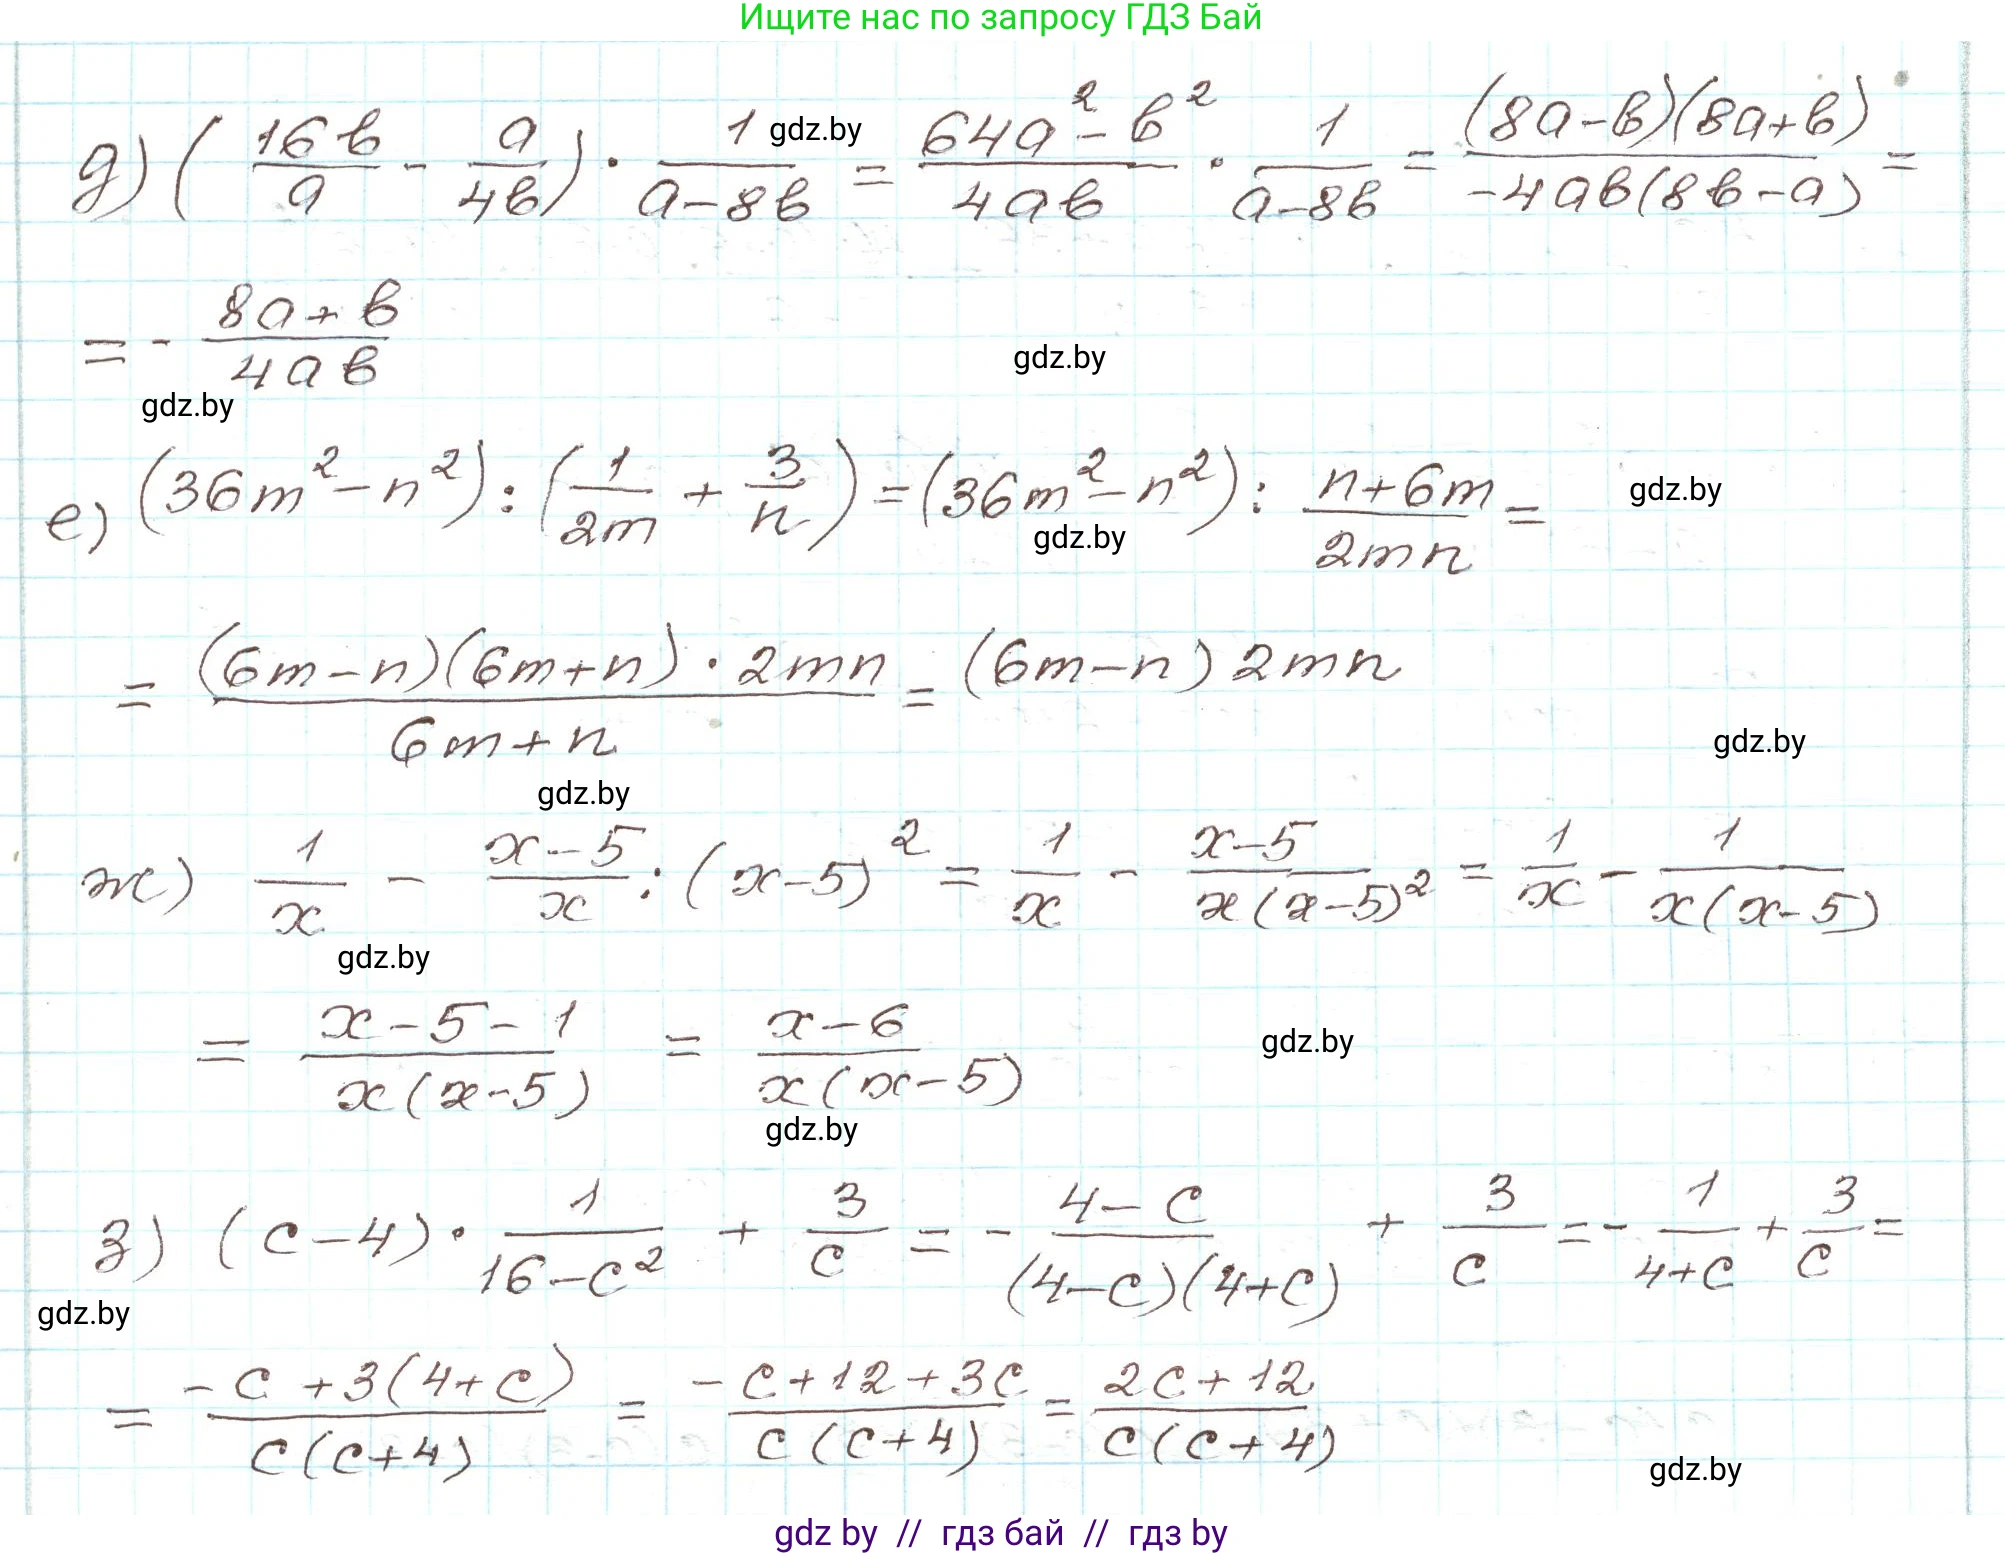 Ищите нас по запросу ГДЗ Бай
д) (16b/a - a/4b) · 1/(a-8b) = (64a²-b²)/4ab · 1/(a-8b) = (8a-b)(8a+b)/(-4ab(8b-a)) =
gdz.by
= - (8a+b)/4ab
gdz.by
gdz.by
е) (36m²-n²) : (1/2m + 3/n) = (36m²-n²) : (n+6m)/2mn =
gdz.by
gdz.by
= (6m-n)(6m+n)·2mn/(6m+n) = (6m-n)2mn
gdz.by
gdz.by
ж) 1/x - (x-5)/x : (x-5)² = 1/x - (x-5)/(x(x-5)²) = 1/x - 1/(x(x-5))
gdz.by
= (x-5-1)/(x(x-5)) = (x-6)/(x(x-5))
gdz.by
gdz.by
з) (c-4) · 1/(16-c²) + 3/c = - (4-c)/((4-c)(4+c)) + 3/c = - 1/(4+c) + 3/c =
gdz.by
= (-c+3(4+c))/(c(c+4)) = (-c+12+3c)/(c(c+4)) = (2c+12)/(c(c+4))
gdz.by
gdz by // гдз бай // гдз by